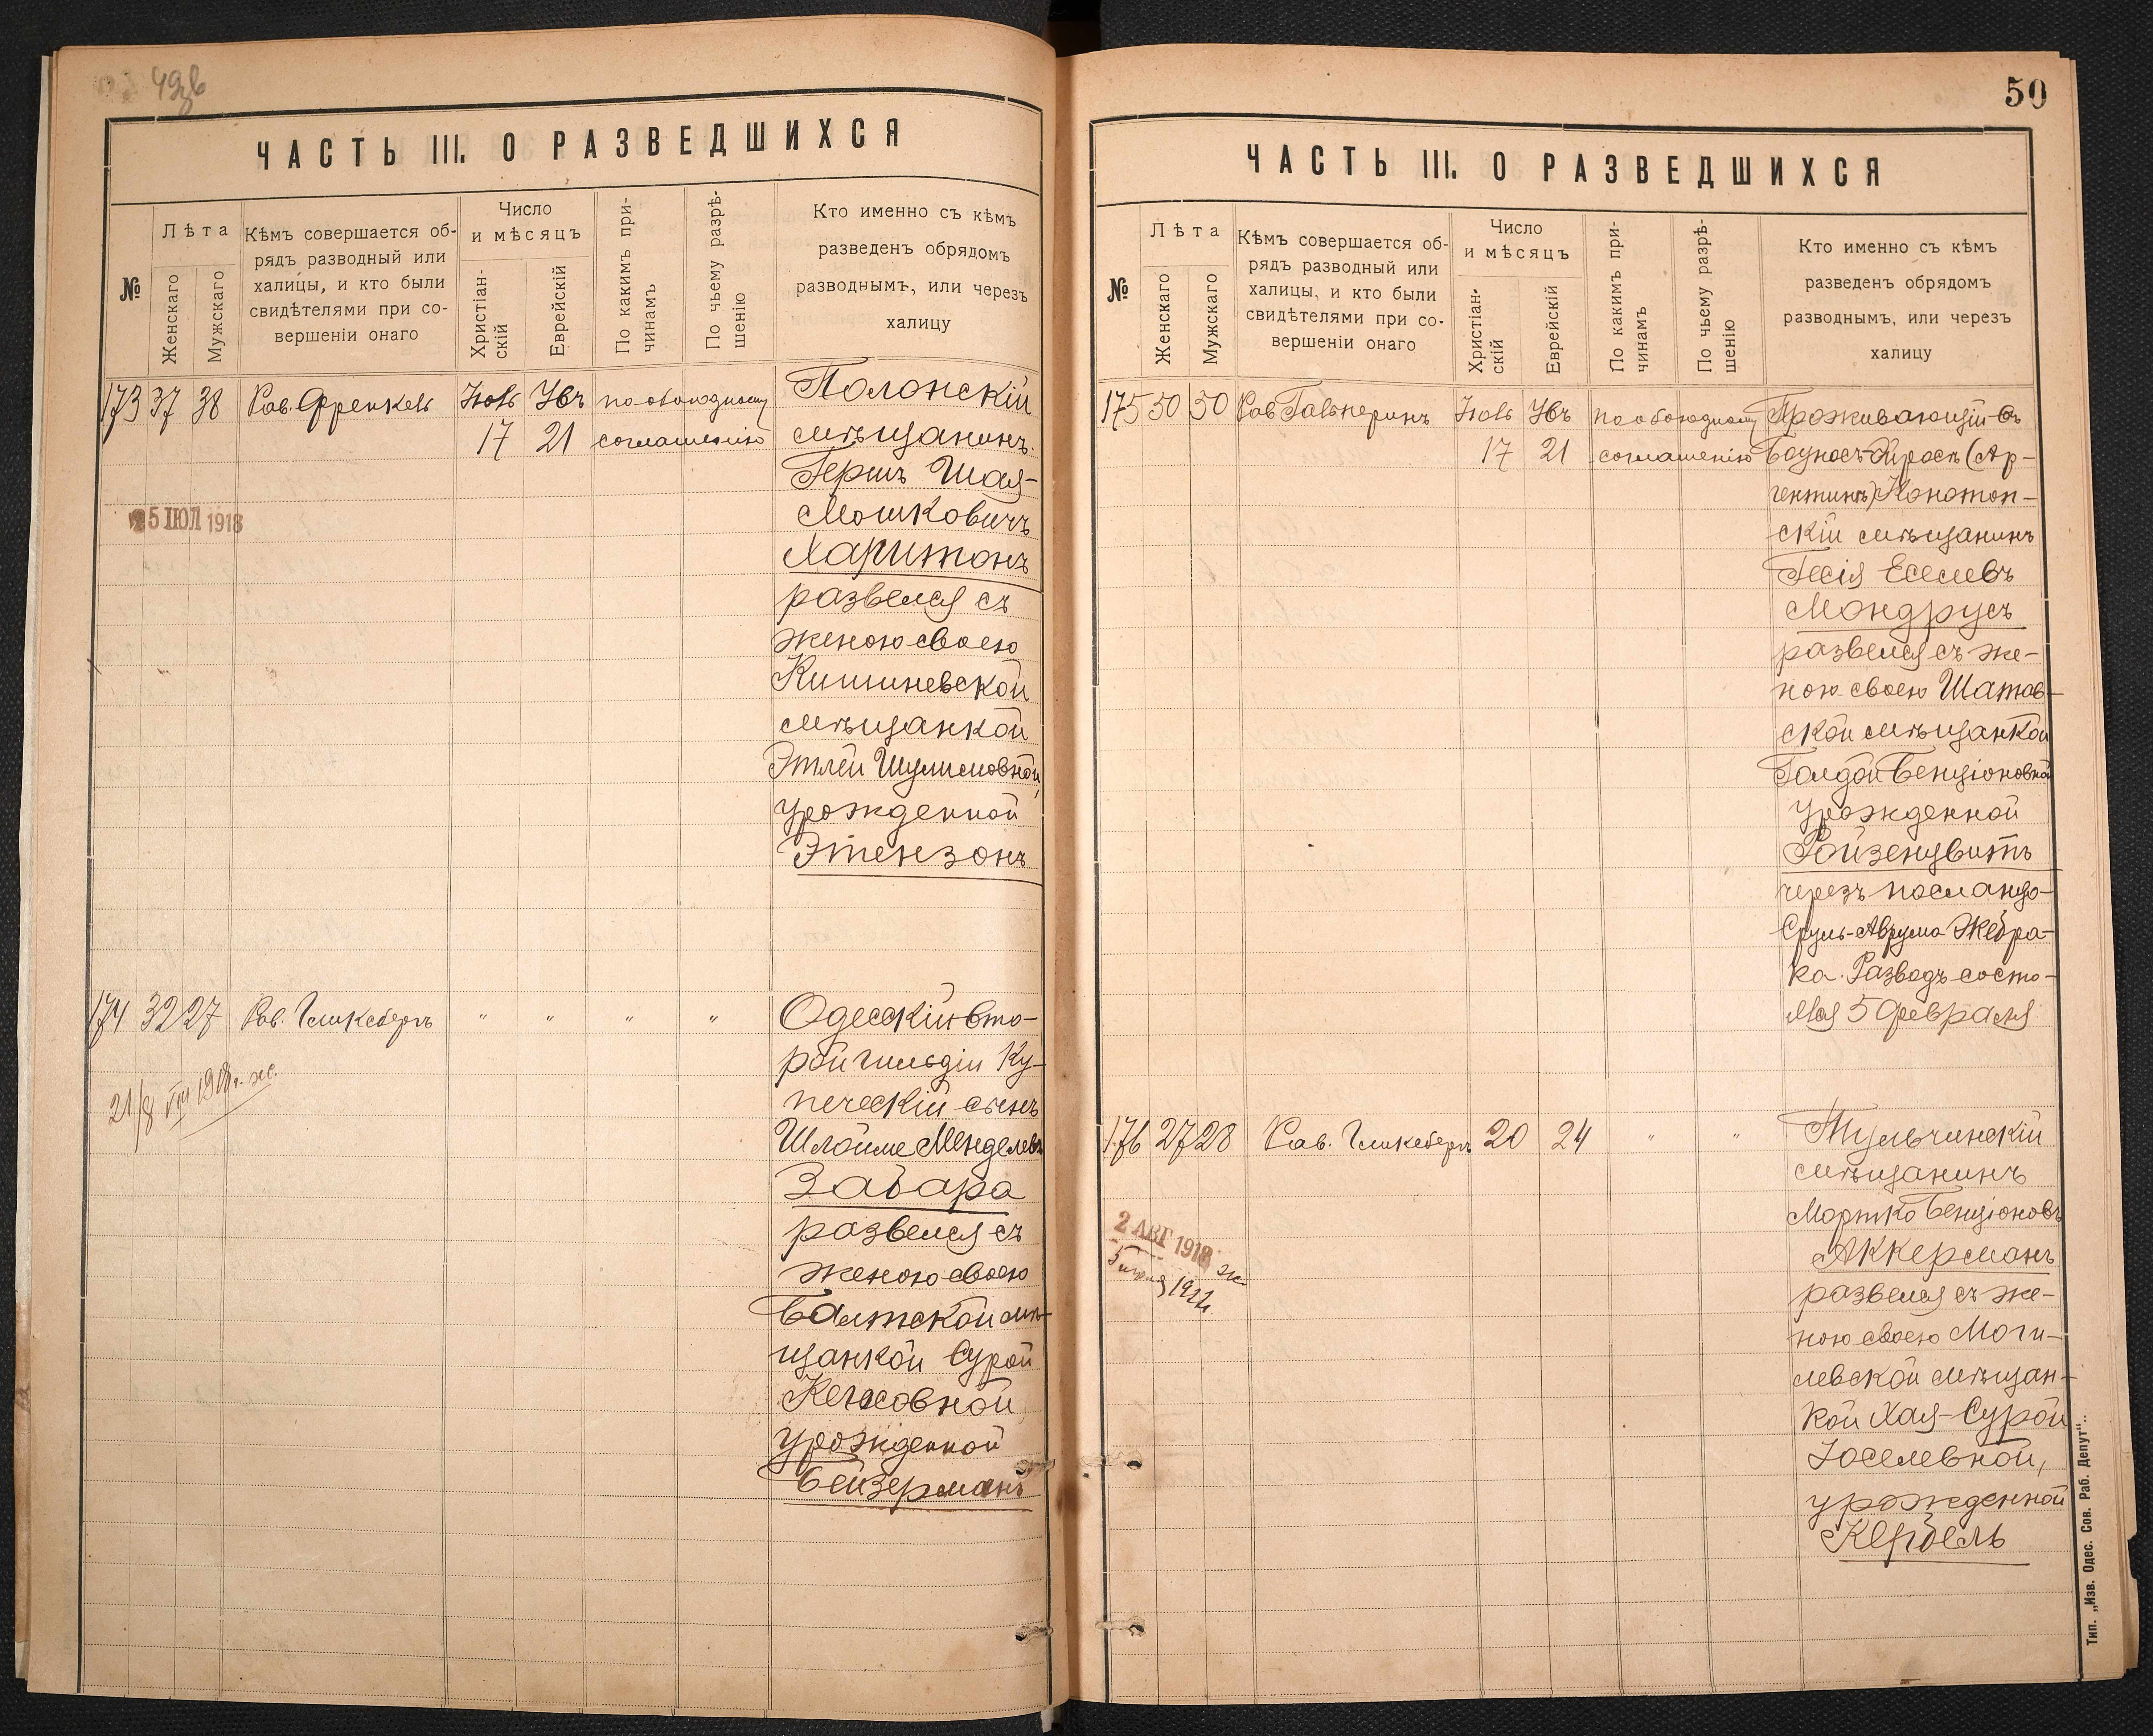 ЧАСТЬ III. О РАЗВЕДШИХСЯ
№
Лѣта
Женскаго
Мужскаго
Кѣмъ совершается об-
рядъ разводный или
халицы, и кто были
свидѣтелями при со-
вершеніи онаго
Число
и мѣсяцъ
Христіан-
скій
Еврейскій
По какимъ при-
чинамъ
По чьему разрѣ-
шенію
Кто именно съ кѣмъ
разведенъ обрядомъ
разводнымъ, или черезъ
халицу
173 37 38 Рав. Френкель Іюль Убъ по обоюдному
17 21 соглашенію
Полонскій
мѣщанинъ
Гершъ Шая-
Мошковичъ
Харитонъ
развелся съ
женою своею
Кишиневской
мѣщанкой
Этлей Шулимовной,
урожденной
Этензонъ
25 ІЮЛ 1918
174 32 27 Рав. Гликсбергъ " " " "
Одесскій вто-
рой гильдіи Ку-
печескій сынъ
Шлойме Менделевъ
Забара
развелся съ
женою своею
Балтской мѣ-
щанкой Сурой
урожденной
Бейзерманъ
21/8 VIII 1918 г. ж.
50
ЧАСТЬ III. О РАЗВЕДШИХСЯ
№
Лѣта
Женскаго
Мужскаго
Кѣмъ совершается об-
рядъ разводный или
халицы, и кто были
свидѣтелями при со-
вершеніи онаго
Число
и мѣсяцъ
Христіан-
скій
Еврейскій
По какимъ при-
чинамъ
По чьему разрѣ-
шенію
Кто именно съ кѣмъ
разведенъ обрядомъ
разводнымъ, или черезъ
халицу
175 50 50 Рав Гальперинъ Іюль Убъ по обоюдному
17 21 соглашенію
Проживающій въ
Боуносъ-Айросъ (Ар-
гентина) Конотоп-
скій мѣщанинъ
Гесія Еселевъ
Мондрусъ
развелся съ же-
ною своею Шатав-
ской мѣщанкой
Голдой Бенціоновной
урожденной
Ройзенцвитъ
черезъ посланца-
Сруль-Аврума Жебра-
ка. Разводъ состо-
ялся 5 Февраля
176 27 28 Рав. Гликсбергъ 20 24 " "
Тульчинскій
мѣщанинъ
Мортко Бенціоновъ
Аккерманъ
развелся съ же-
ною своею Моги-
левской мѣщан-
кой Хая-Сурой
Іоселевной,
урожденной
Кербель
2 АВГ 1918
Тип. „Изв. Одес. Сов. Раб. Депут“.